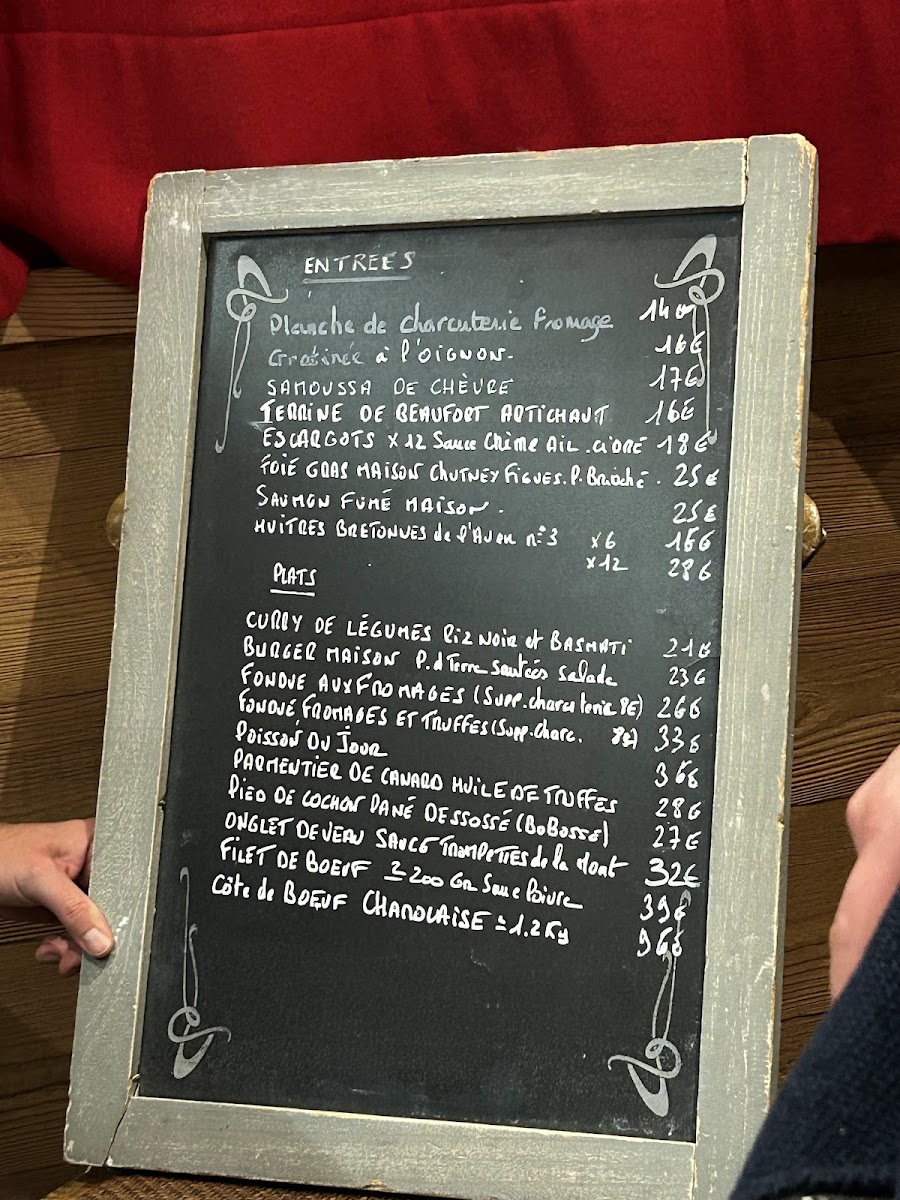 ENTREES
Planche de charcuterie fromage 14€
Gratinée à l'OIGNON. 16€
SAMOUSSA DE CHÈVRE 17€
TERRINE DE BEAUFORT ARTICHAUT 16€
ESCARGOTS x 12 Sauce Crème AIL. CIDRE 18€
FOIE GRAS MAISON CHUTNEY FIGUES. P. Brioché. 25€
SAUMON FUMÉ MAISON. 25€
HUITRES BRETONNES de l'Aven n°3 x6 16€
x12 28€
PLATS
CURRY DE LÉGUMES Riz Noir et BASMATI 21€
BURGER MAISON P. d Terre Sautées Salade 23€
FONDUE AUX FROMAGES (Supp. charcuterie 8€) 26€
FONDUE FROMAGES ET TRUFFES (Supp. Charc. 8€) 33€
POISSON DU JOUR 36€
PARMENTIER DE CANARD HUILE DE TRUFFES 28€
PIED DE COCHON PANÉ DESSOSSÉ (BOBOSSE) 27€
ONGLET DE VEAU SAUCE TROMPETTES de la Mort 32€
FILET DE BOEUF ± 200 Gr Sauce Poivre 39€
Côte de BOEUF CHAROLAISE ≃ 1.2 Kg 96€